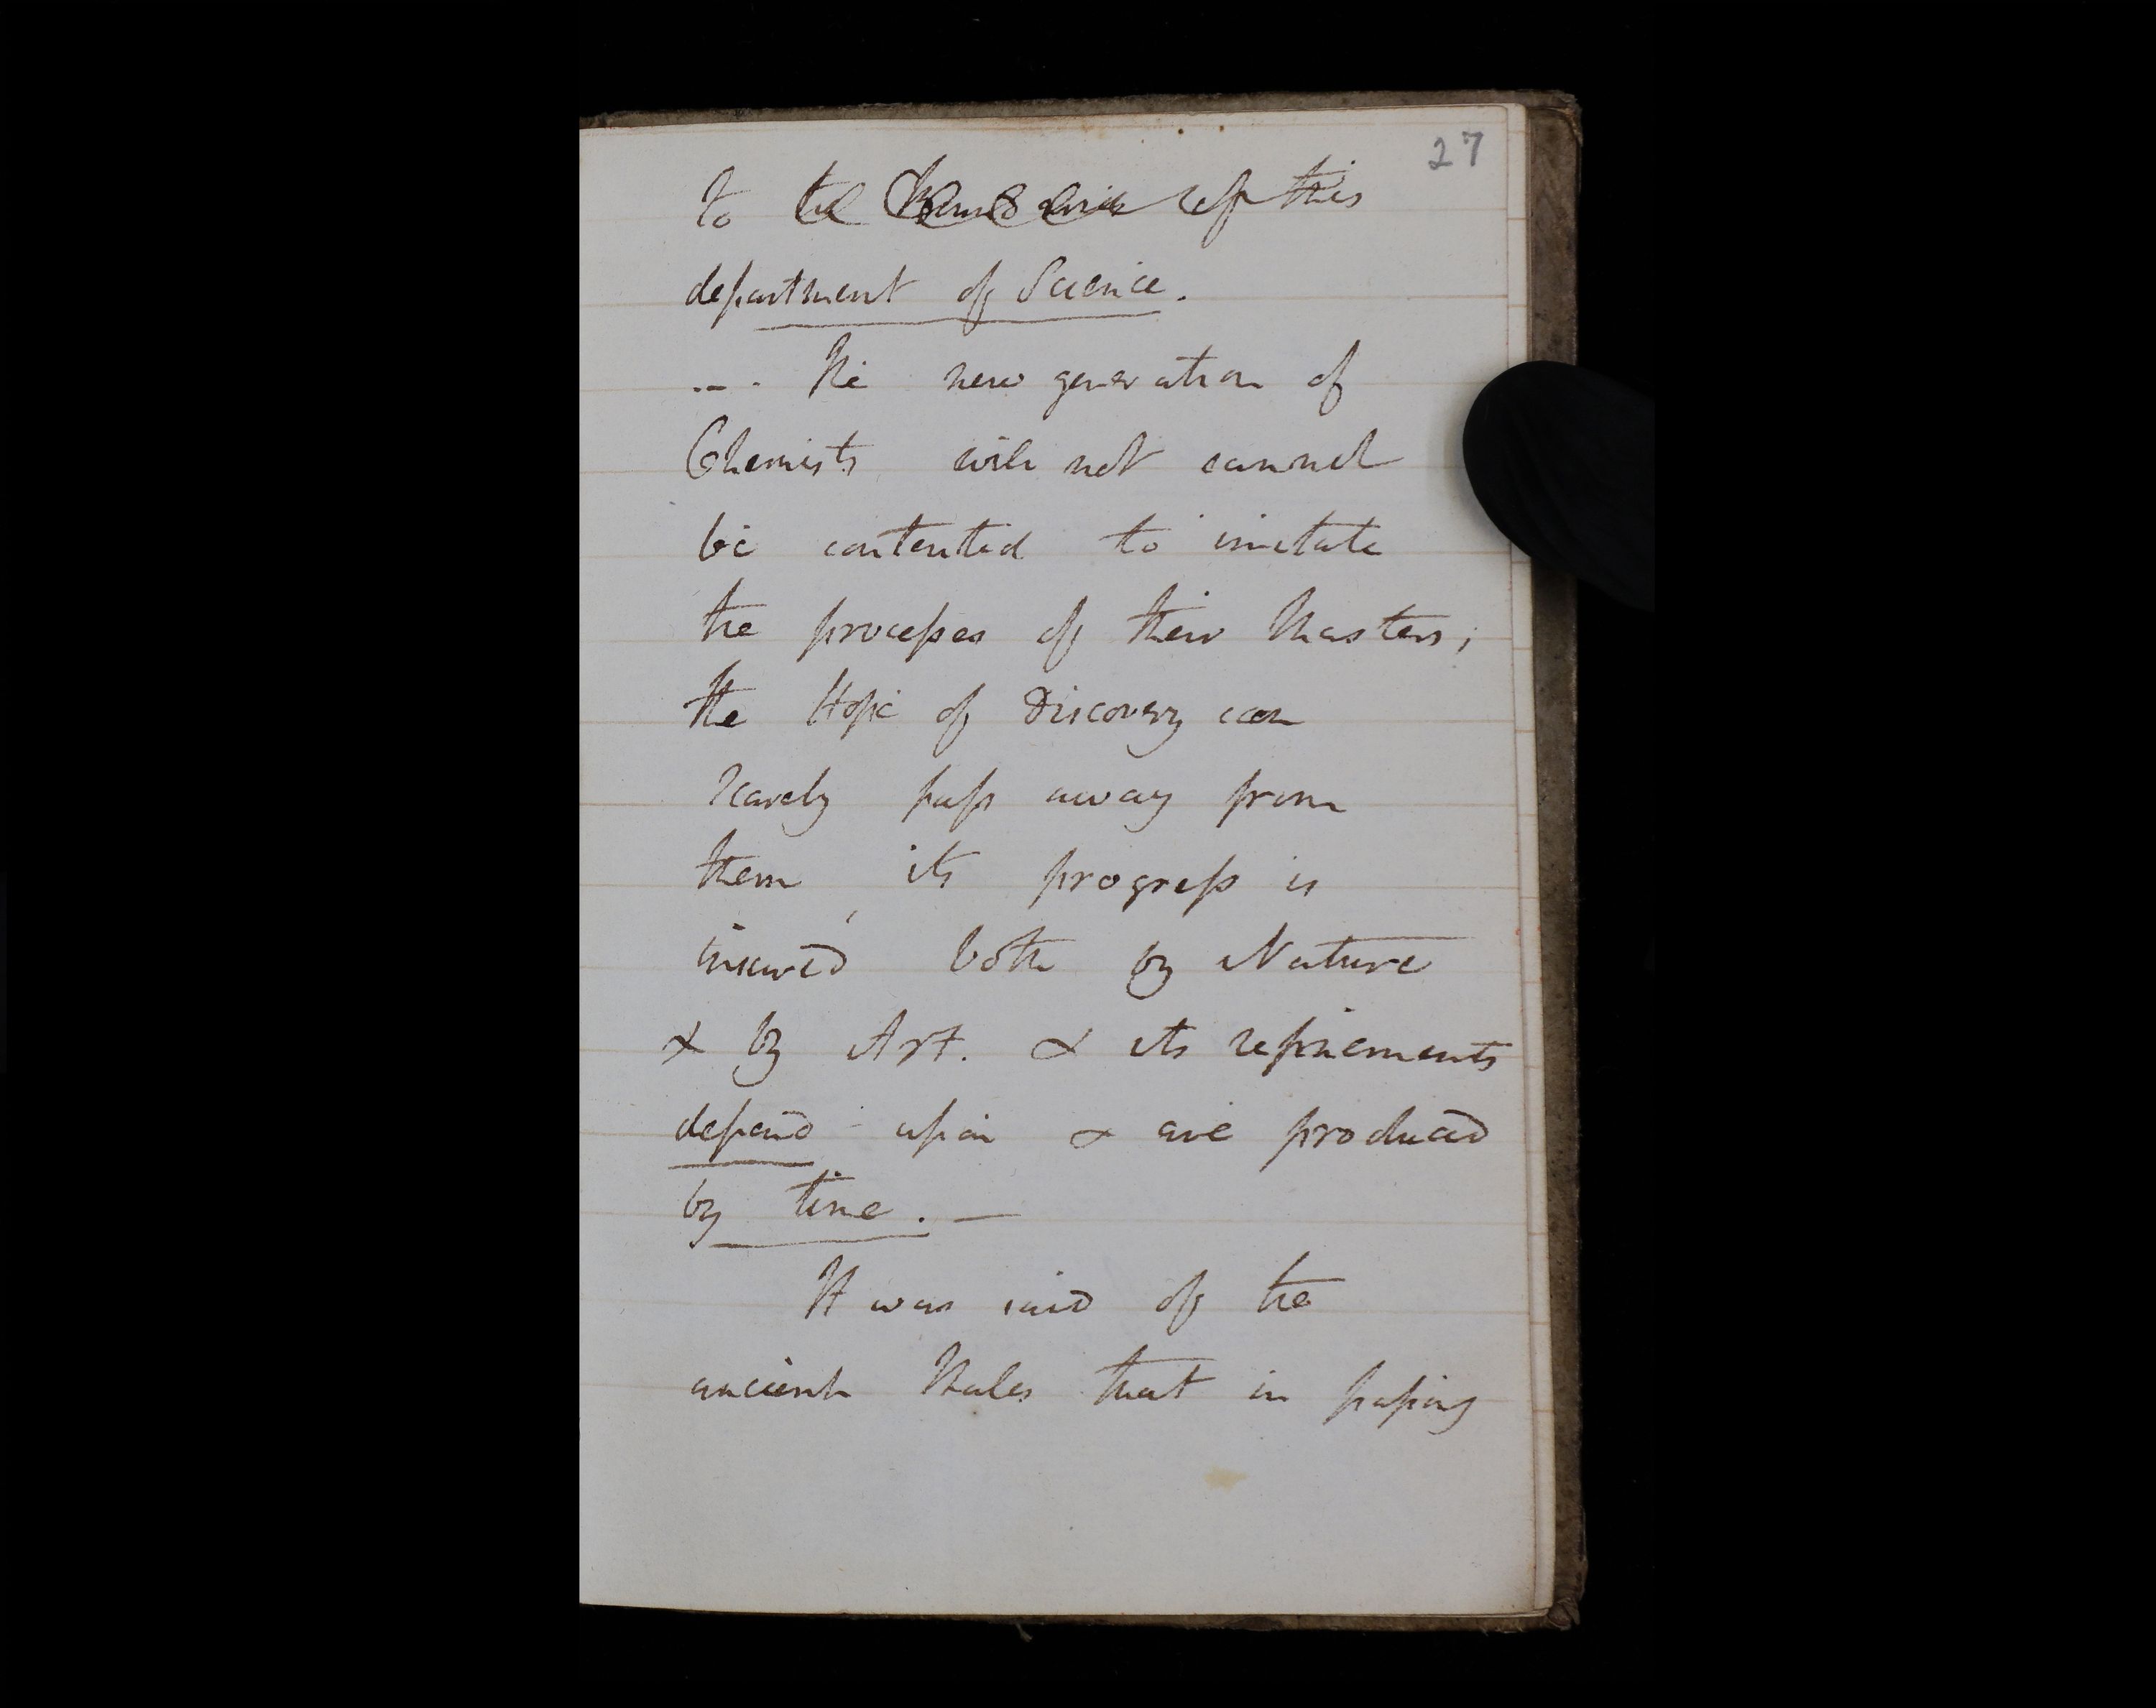 27
to this
department of Science.
-- . The new generation of
Chemists will not cannot
be contented to imitate
the processes of their Masters;
the Hope of Discovery can
rarely pass away from
them, its progress is
insured both by Nature
& by Art. & its refinements
depend upon & are produced
by time. —
It was said of the
ancient that in passing